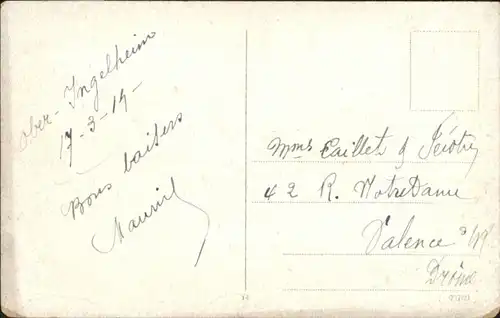 Ober-Ingelheim
17-3-19-
Bons baisers
Maurice
Mmes Caillet &
42 R. NotreDame
Valence s/R
Drôme